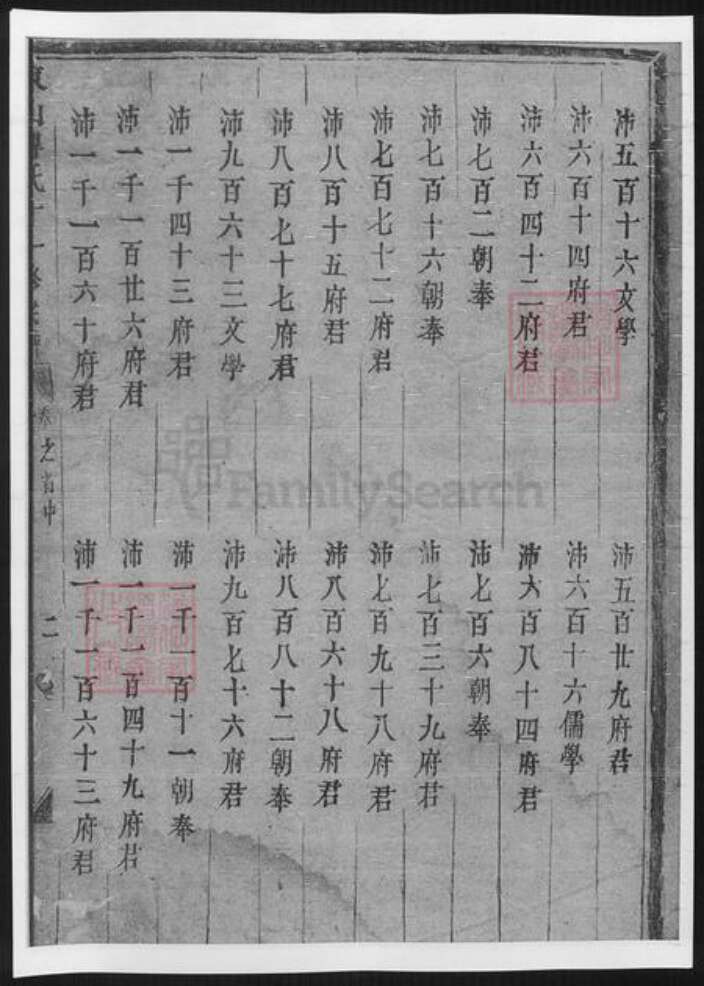 沛五百十六文學
沛五百廿九府君
沛六百十四府君
沛六百十六儒學
沛六百四十二府君
沛六百八十四府君
沛七百二朝奉
沛七百六朝奉
沛七百十六朝奉
沛七百三十九府君
沛七百七十二府君
沛七百九十八府君
沛八百十五府君
沛八百六十八府君
沛八百七十七府君
沛八百八十二朝奉
沛九百六十三文學
沛九百七十六府君
沛一千四十三府君
沛一千一百十一朝奉
沛一千一百廿六府君
沛一千一百四十九府君
沛一千一百六十府君
沛一千一百六十三府君
卷之首中
二
FamilySearch